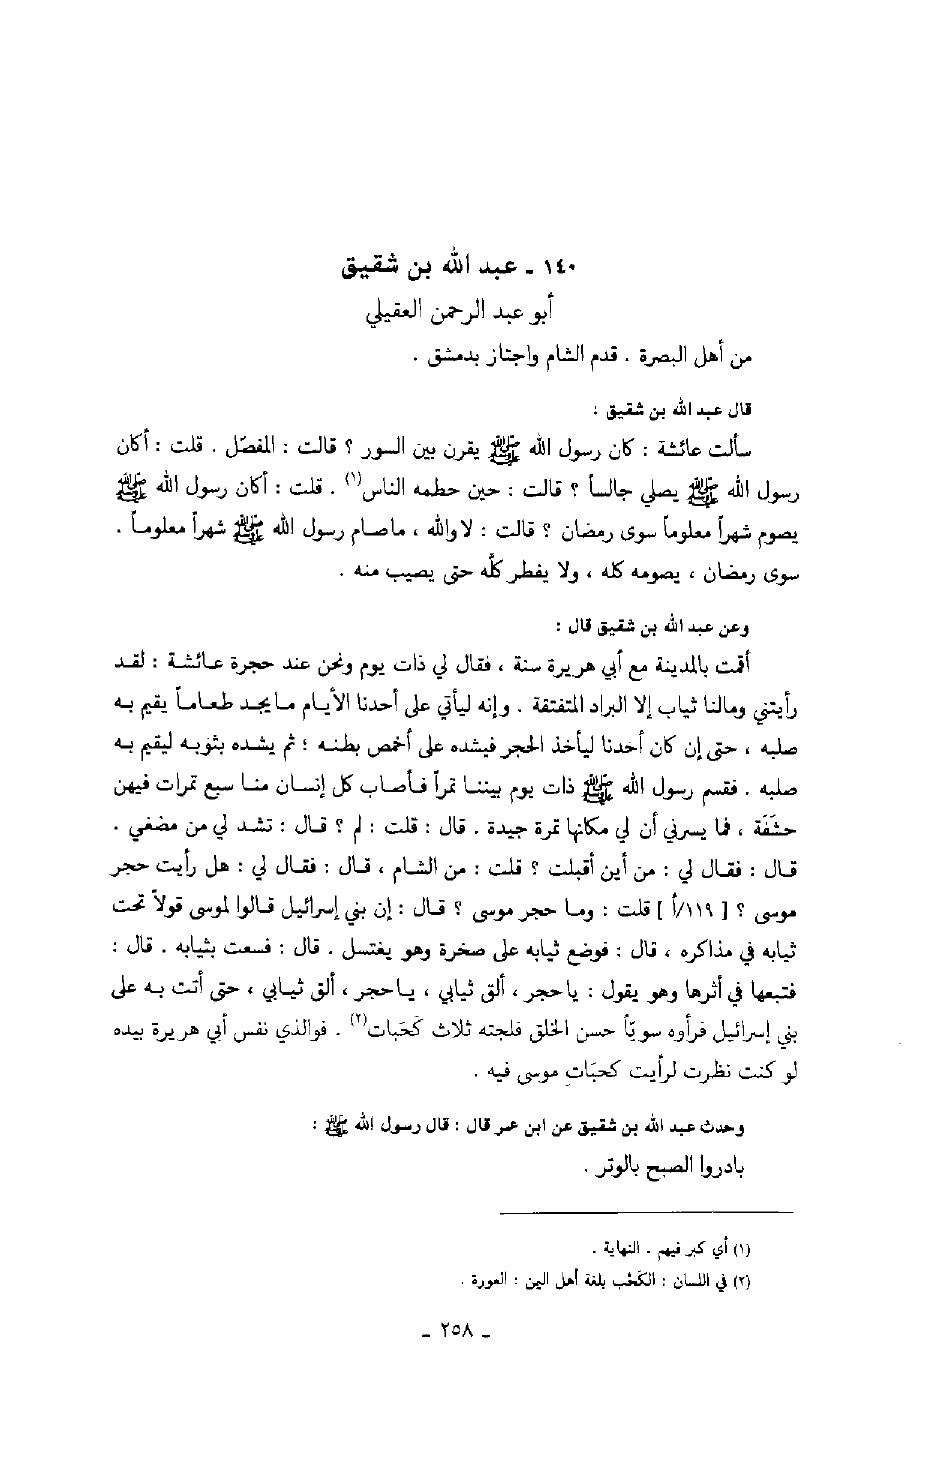 ١٤٠ - عبد الله بن شقيق
أبو عبد الرحمن العقيلي
من أهل البصرة . قدم الشام واجتاز بدمشق .
قال عبد الله بن شقيق :
سألت عائشة : كان رسول الله ﷺ يقرن بين السور ؟ قالت : المفصّل . قلت : أكان
رسول الله ﷺ يصلي جالساً ؟ قالت : حين حطمه الناس(١) . قلت : أكان رسول الله ﷺ
يصوم شهراً معلوماً سوى رمضان ؟ قالت : لا والله ، ماصام رسول الله ﷺ شهراً معلوماً .
سوى رمضان ، يصومه كله ، ولا يفطر كلَّه حتى يصيب منه .
وعن عبد الله بن شقيق قال :
أقمت بالمدينة مع أبي هريرة سنة ، فقال لي ذات يوم ونحن عند حجرة عائشة : لقد
رأيتني ومالنا ثياب إلا البراد المتفتقة . وإنه ليأتي على أحدنا الأيام مايجد طعاماً يقيم به
صلبه ، حتى إن كان أحدنا ليأخذ الحجر فيشده على أخمص بطنه ؛ ثم يشده بثوبه ليقيم به
صلبه . فقسم رسول الله ﷺ ذات يوم بيننا تمراً فأصاب كل إنسان منا سبع تمرات فيهن
حشَفَة ، فما يسرني أن لي مكانها تمرة جيدة . قال : قلت : لم ؟ قال : تشد لي من مضغي .
قال : فقال لي : من أين أقبلت ؟ قلت : من الشام ، قال : فقال لي : هل رأيت حجر
موسى ؟ [ ١١٩/أ ] قلت : وما حجر موسى ؟ قال : إن بني إسرائيل قالوا لموسى قولاً تحت
ثيابه في مذاكره ، قال : فوضع ثيابه على صخرة وهو يغتسل . قال : فسعت بثيابه . قال :
فتبعها في أثرها وهو يقول : ياحجر ، ألق ثيابي ، ياحجر ، ألق ثيابي ، حتى أتت به على
بني إسرائيل فرأوه سويّاً حسن الخلق فلجته ثلاث كَحَبات(٢) . فوالذي نفس أبي هريرة بيده
لو كنت نظرت لرأيت كحبَات موسى فيه .
وحدث عبد الله بن شقيق عن ابن عمر قال : قال رسول الله ﷺ :
بادروا الصبح بالوتر .
(١) أي كبر فيهم . النهاية .
(٢) في اللسان : الكَحْب بلغة أهل اليمن : العورة .
- ٢٥٨ -